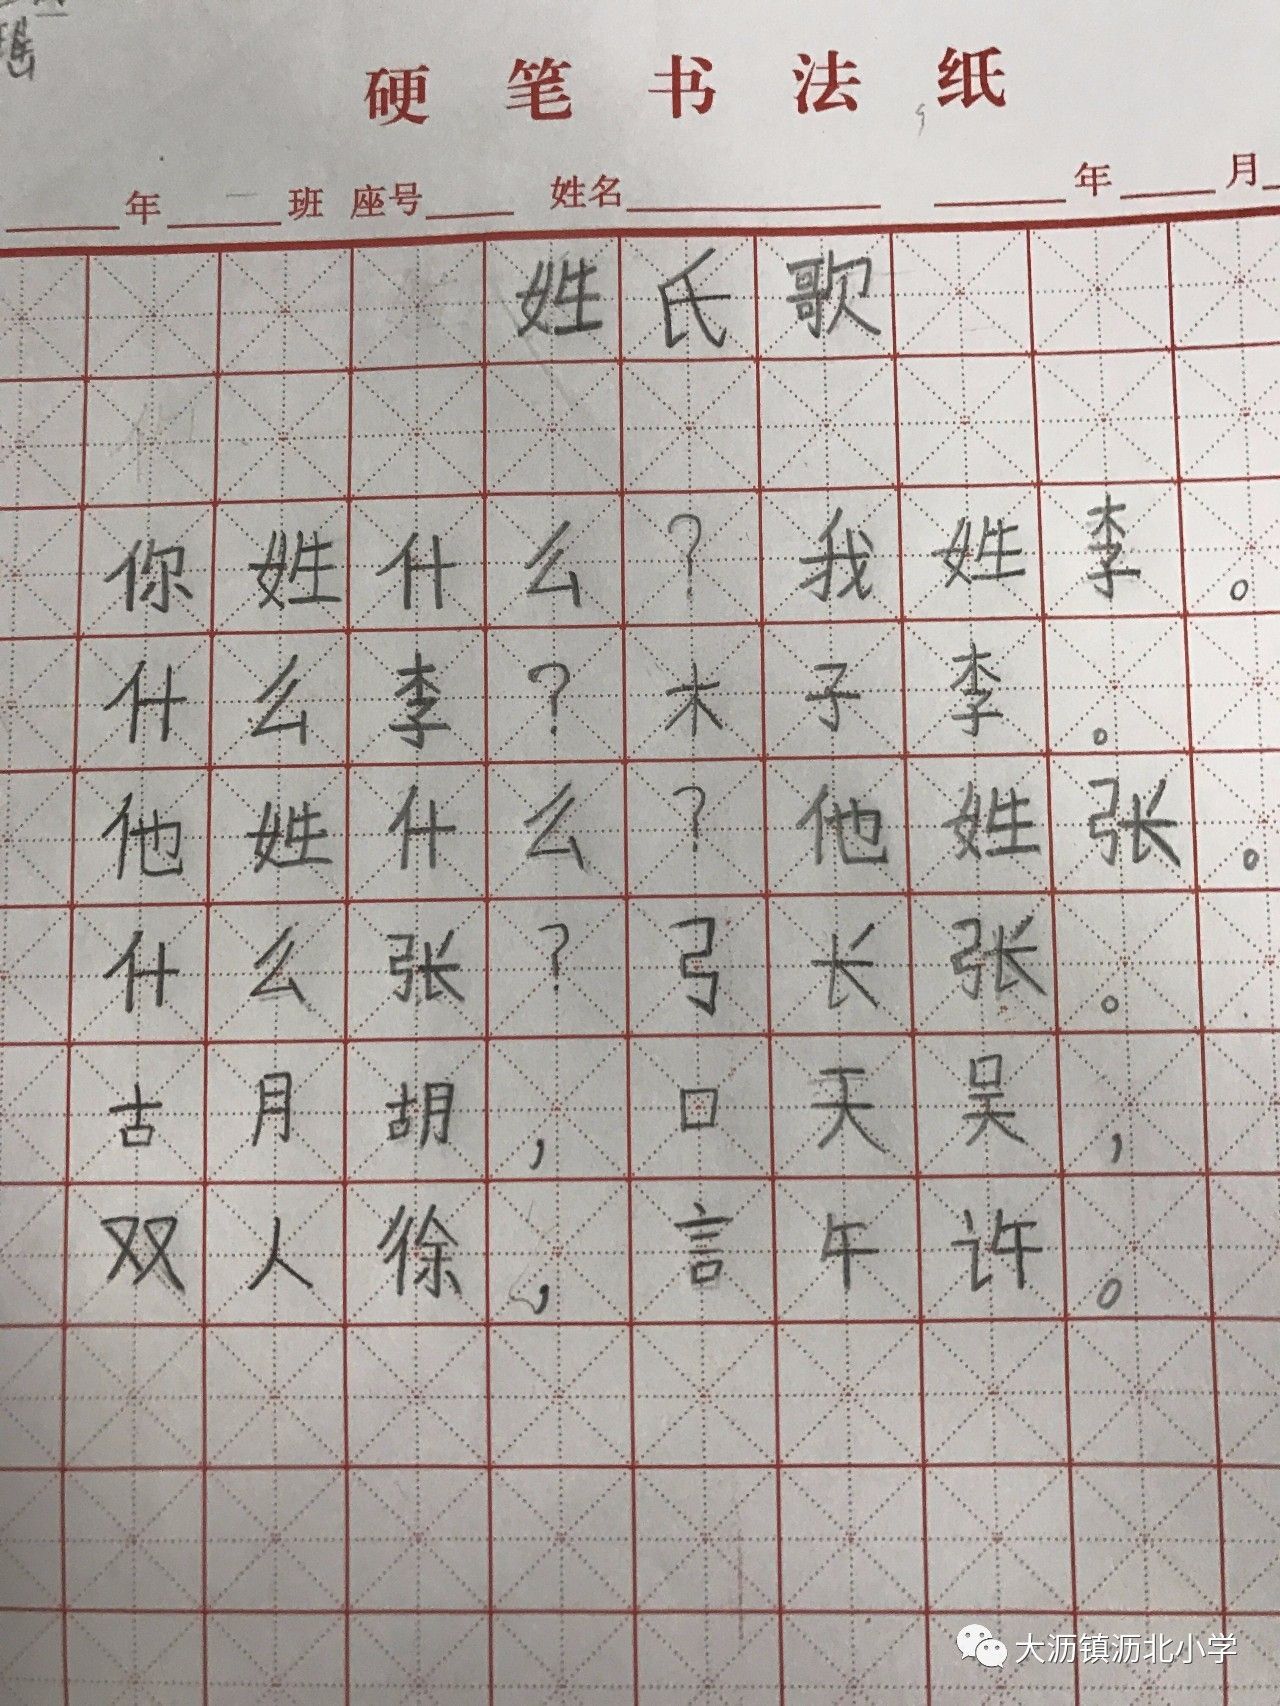 硬笔书法纸
年 班 座号 姓名 年 月
姓氏歌
你姓什么?我姓李。
什么李?木子李。
他姓什么?他姓张。
什么张?弓长张。
古月胡,口天吴,
双人徐,言午许。
大沥镇沥北小学